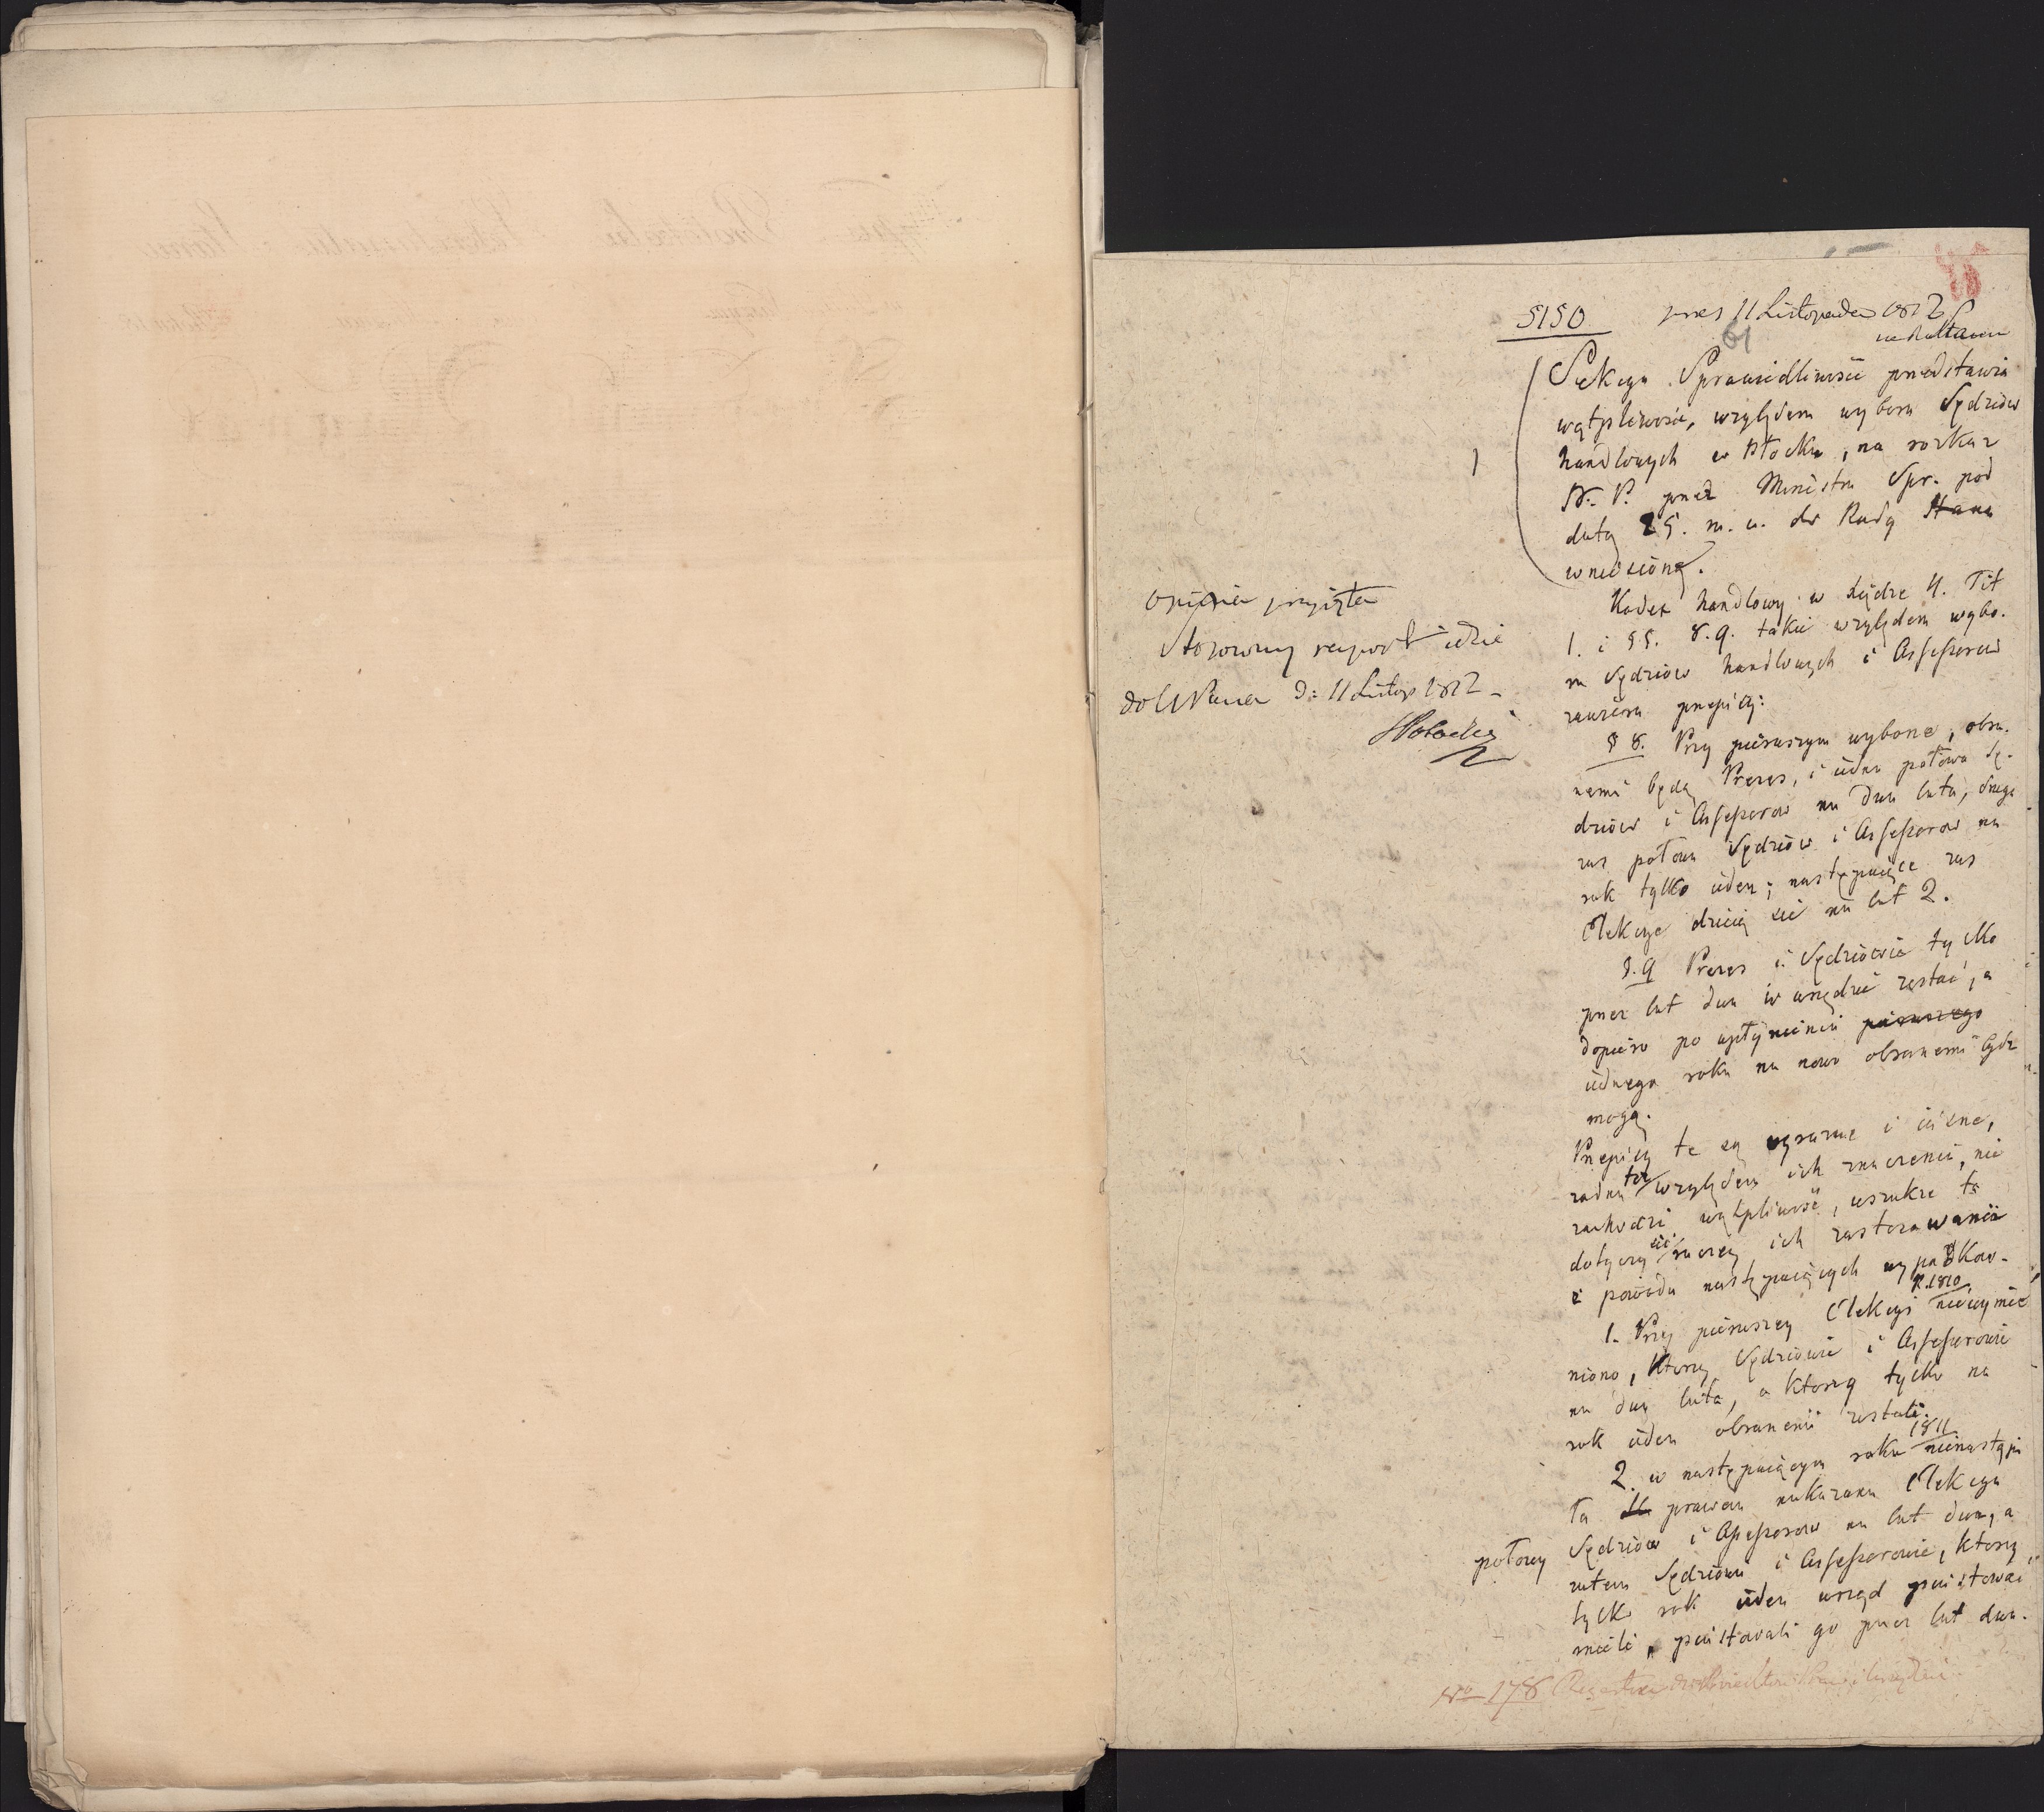 5150 pres 11 Listopada 1812
61
Sekcya Sprawiedliwości przedstawia
wątpliwość, względem wyboru Sędziów
handlowych w Płocku, na rozkaz
N. P. przez Ministra Spr. pod
datą 25. m. u. do Rady Stanu
wniesioną.
Kodex handlowy w księdze 4. Tit
1. i §§. 8. 9. takie względem wybo-
ru Sędziów handlowych i Assessorów
zawiera przepisy:
§ 8. Przy pierwszym wyborze, obra-
nemi będą Prezes, i iedna połowa Sę-
dziów i Assessorów na dwa lata, druga
zas połowa Sędziów i Assessorów na
rok tylko ieden; następuiące zas
Elekcye dzieią się na lat 2.
§. 9 Prezes i Sędziowie tylko
przez lat dwa w urzędzie zostać, a
dopiero po upłynieniu pierwszego
iednego roku na nowo obranemi bydz
mogą.
Przepisy te są wyraźne i iasne,
żadna też względem ich znaczenia, nie
zachodzi wątpliwość, wszakże ta
dotyczy się raczey ich zastosowania
z powodu następuiących wypadków-
1. Przy pierwszey Elekcyi R. 1810 niewymie
niono, którzy Sędziowie i Assessorowie
na dwa lata, a którzy tylko na
rok ieden obranemi zostali.
2. w następuiącym roku 1811 nienastąpi
ła prawem nakazana Elekcya
połowy Sędziów i Assessorów na lat dwa, a
zatem Sędziowie i Assessorowie, którzy
tylko rok ieden urząd piastować
mieli, piastowali go przez lat dwa.
opinia przyięta
stosowny raport idzie
do N Pana d: 11 Listop 1812 -
SPotocki
No 178